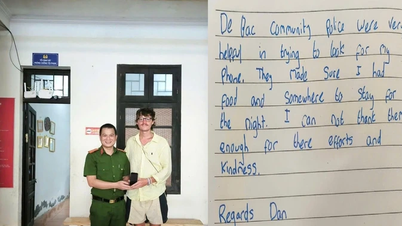 De Bac Community Police were very
helpful in trying to look for my
phone. They made sure I had
food and somewhere to stay for
the night. I can not thank them
enough for there efforts and
kindness.
Regards Dan